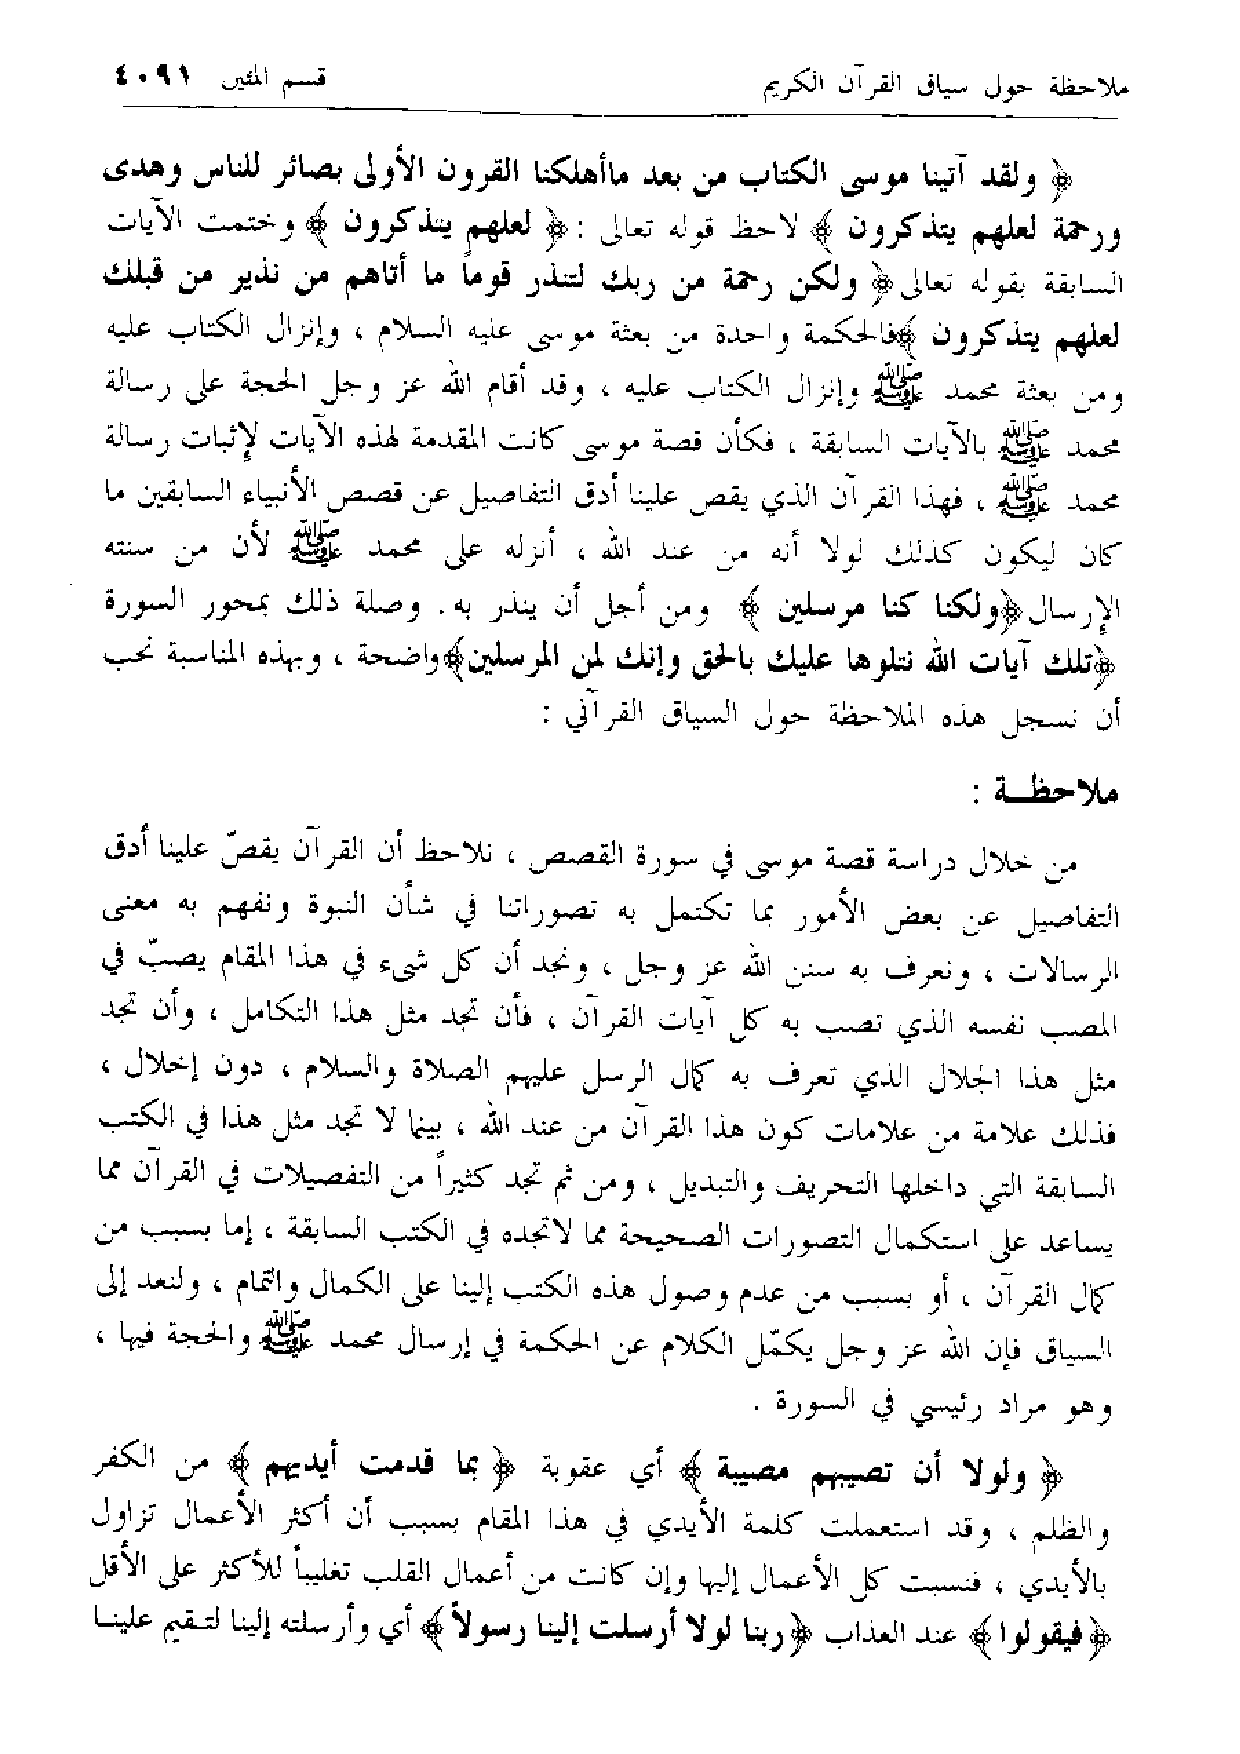 ملاحظة حول سياق القرآن الكريم قسم المئين ٤٠٩١
﴿ ولقد آتينا موسى الكتاب من بعد ماأهلكنا القرون الأولى بصائر للناس وهدى
ورحمة لعلهم يتذكرون ﴾ لاحظ قوله تعالى : ﴿ لعلهم يتذكرون ﴾ وختمت الآيات
السابقة بقوله تعالى ﴿ ولكن رحمة من ربك لتنذر قوماً ما أتاهم من نذير من قبلك
لعلهم يتذكرون ﴾فالحكمة واحدة من بعثة موسى عليه السلام ، وإنزال الكتاب عليه
ومن بعثة محمد ﷺ وإنزال الكتاب عليه ، وقد أقام الله عز وجل الحجة على رسالة
محمد ﷺ بالآيات السابقة ، فكأن قصة موسى كانت المقدمة لهذه الآيات لإثبات رسالة
محمد ﷺ ، فهذا القرآن الذي يقص علينا أدق التفاصيل عن قصص الأنبياء السابقين ما
كان ليكون كذلك لولا أنه من عند الله ، أنزله على محمد ﷺ لأن من سنته
الإرسال﴿ولكنا كنا مرسلين ﴾ ومن أجل أن ينذر به . وصلة ذلك بمحور السورة
﴿تلك آيات الله نتلوها عليك بالحق وإنك لمن المرسلين﴾واضحة ، وبهذه المناسبة نحب
أن نسجل هذه الملاحظة حول السياق القرآني :
ملاحظــة :
من خلال دراسة قصة موسى في سورة القصص ، نلاحظ أن القرآن يقصّ علينا أدق
التفاصيل عن بعض الأمور بما تكتمل به تصوراتنا في شأن النبوة ونفهم به معنى
الرسالات ، ونعرف به سنن الله عز وجل ، ونجد أن كل شيء في هذا المقام يصبّ في
المصب نفسه الذي تصب به كل آيات القرآن ، فأن تجد مثل هذا التكامل ، وأن تجد
مثل هذا الجلال الذي تعرف به كمال الرسل عليهم الصلاة والسلام ، دون إخلال ،
فذلك علامة من علامات كون هذا القرآن من عند الله ، بينما لا تجد مثل هذا في الكتب
السابقة التي داخلها التحريف والتبديل ، ومن ثم تجد كثيراً من التفصيلات في القرآن مما
يساعد على استكمال التصورات الصحيحة مما لاتجده في الكتب السابقة ، إما بسبب من
كمال القرآن ، أو بسبب من عدم وصول هذه الكتب إلينا على الكمال والتمام ، ولنعد إلى
السياق فإن الله عز وجل يكمّل الكلام عن الحكمة في إرسال محمد ﷺ والحجة فيها ،
وهو مراد رئيسي في السورة .
﴿ ولولا أن تصيبهم مصيبة ﴾ أي عقوبة ﴿ بما قدمت أيديهم ﴾ من الكفر
والظلم ، وقد استعملت كلمة الأيدي في هذا المقام بسبب أن أكثر الأعمال تزاول
بالأيدي ، فنسبت كل الأعمال إليها وإن كانت من أعمال القلب تغليباً للأكثر على الأقل
﴿فيقولوا ﴾ عند العذاب ﴿ربنا لولا أرسلت إلينا رسولاً ﴾ أي وأرسلته إلينا لتـقـيم علينا